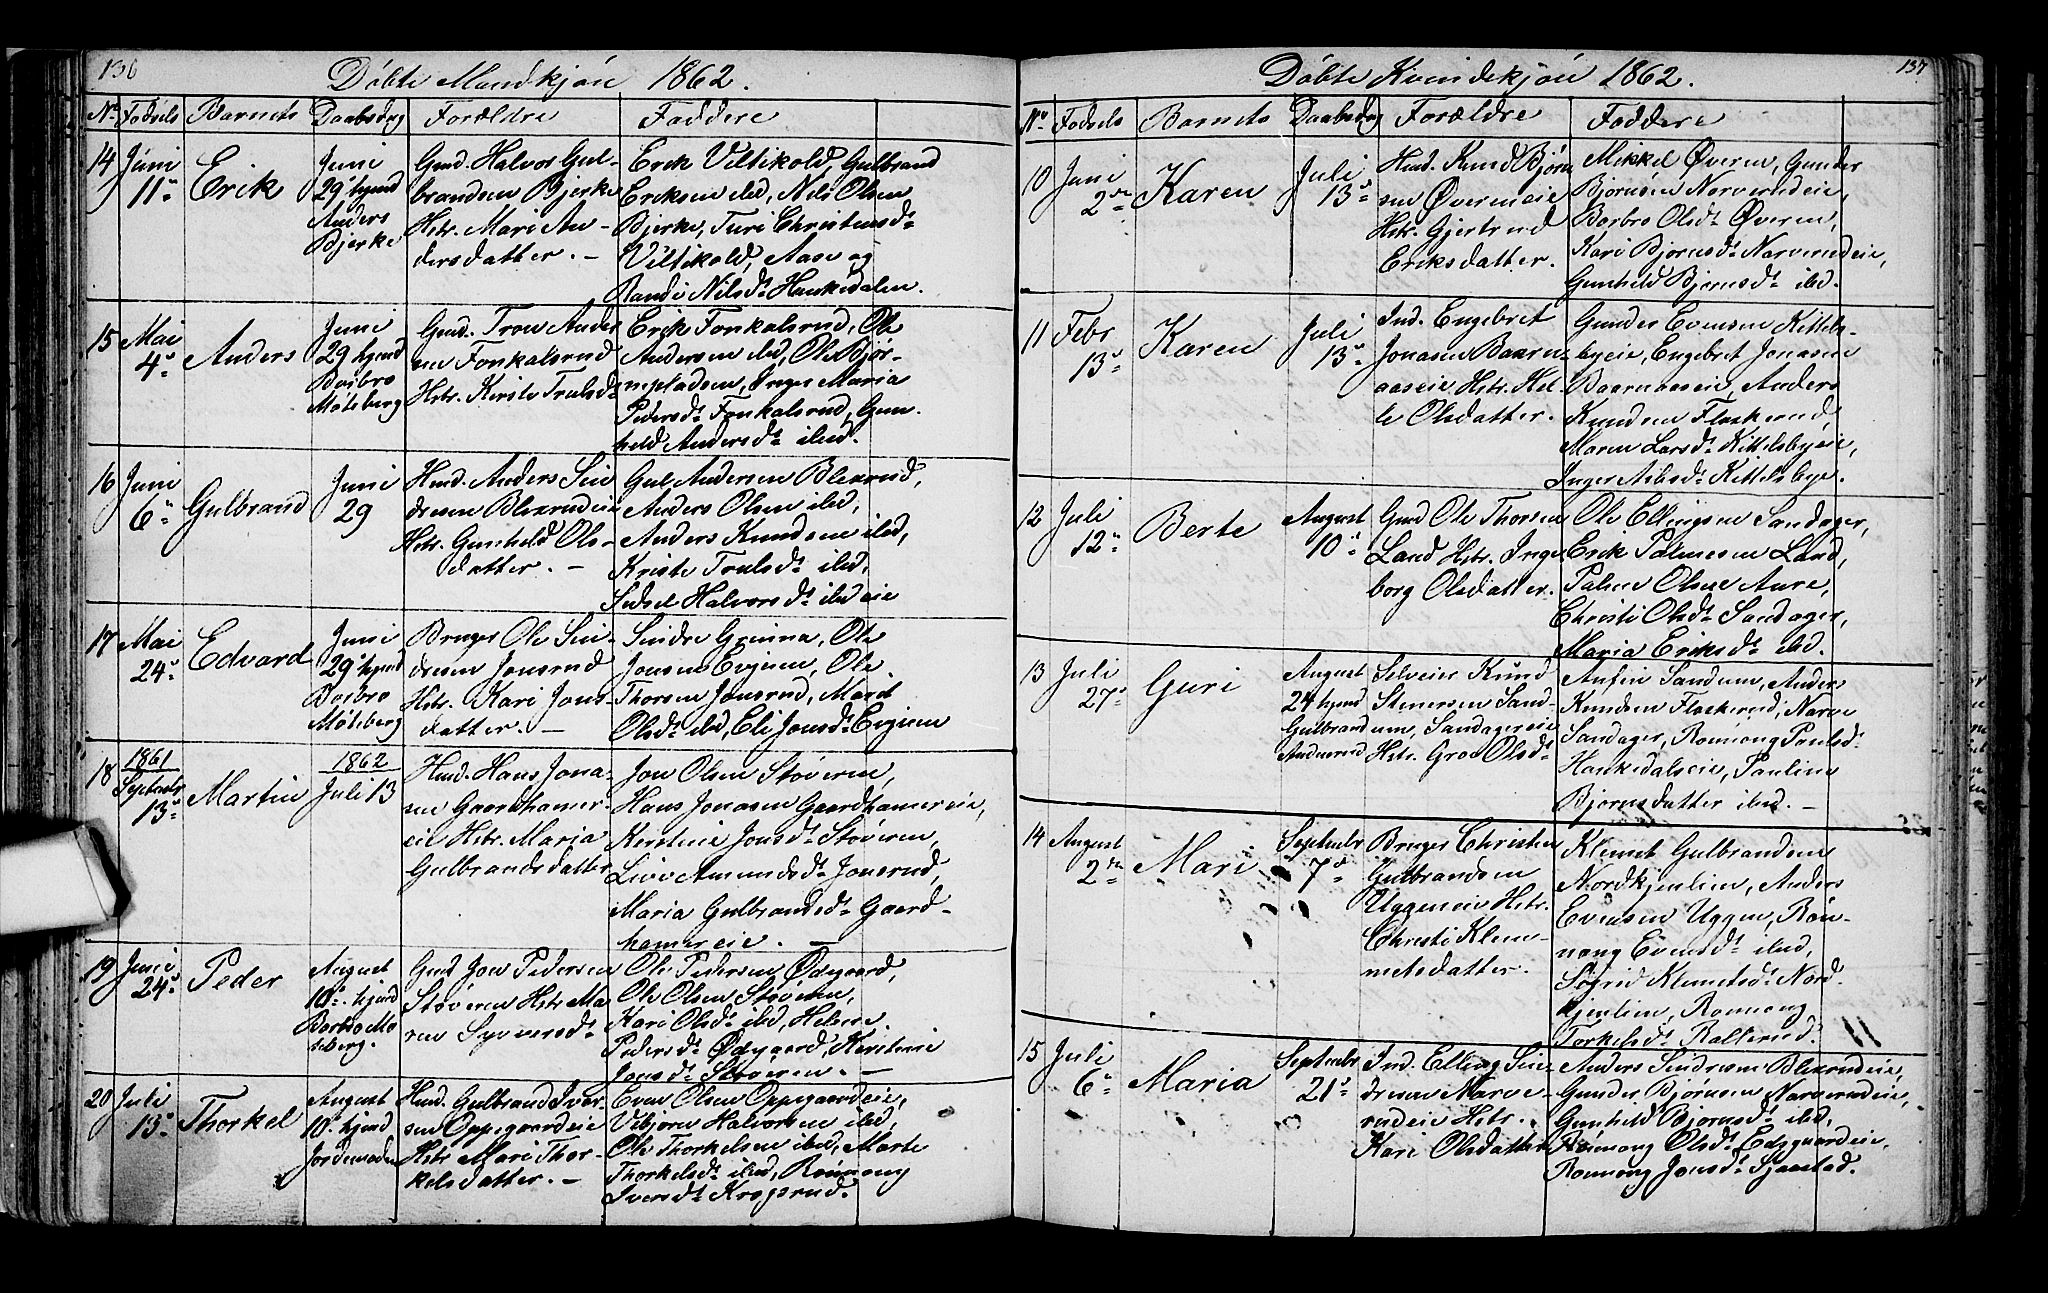 136
Döbte Mandkjön 1862.
No Födsels Barnets Daabsdag Forældre Faddere
14 Juni 11te Erik
Juni 29 hjemd Anders Bjerke
Gmd. Halvor Gul-
brandsen Bjerke
Hstr. Mari An-
dersdatter. –
Erik Viltikold, Gulbrand
Eriksen ibid, Nils Olsen
Bjerke, Turi Christensdt
Viltikold, Aase og
Randi Nilsdt Haukedalen.
15 Mai 4de Anders
Juni 29 hjemd Barbro Møteberg
Gmd. Tron Ander
sen Fonkalsrud
Hstr. Kirsti Trulsdt
Erik Fonkalsrud, Ole
Andersen ibid, Ole Bjør-
Inger Maria
Pedersdt Fonkalsrud, Gun-
hild Andersdt ibid.
16 Juni 6te Gulbrand
Juni 29
Husmd. Anders Sin
dresen Blexrudeie
Hstr. Gunhild Ols-
datter. –
Gul Andersen Blexrud,
Anders Olsen ibid,
Anders Knudsen ibid,
Kristi Trulsdt ibid,
Sidsel Halvorsdt ibid eie
17 Mai 24de Edvard
Juni 29 hjemd Barbro Møteberg
Bruger Ole Sin-
dresen Jonsrud
Hstr. Kari Jons-
datter. –
Sindre Grimna, Ole
Jonsen Evjuen, Ole
Thorsen Jonsrud, Marit
Olsdt ibid, Eli Jonsdt Evjuen
18 1861 Septembr 13de Martin
1862 Juli 13
Husmd. Hans Jona-
sen Gaardhamer-
eie Hstr. Maria
Gulbrandsdatter
Jon Olsen Støveren,
Hans Jonasen Gaardhamereie,
Kerstine Jonsdt Støveren,
Live Amundsdt Jonsrud,
Maria Gulbrandsdt Gaard-
hamereie. –
19 Juni 24de Peder
August 10de hjemd Barbro Mø teberg.
Gmd Jon Pedersen
Støveren Hstr. Ma
ren Syversdt
Ole Pedersen Ødegaard,
Ole Olsen Støveren,
Kari Olsdt ibid, Helene
Pedersdt Ødegaard, Kerstine
Jonsdt Støveren. –
20 Juli 15de Thorkel
August 10de hjemd Jordemoden
Husmd. Gulbrand Iver-
sen Oppegaardeie
Hstr Mari Thor-
kelsdatter. –
Even Olsen Oppegaardeie,
Vibjörn Halvorsen ibid,
Ole Thorkelsen ibid, Marte
Thorkelsdt ibid, Rönnong
Iversdt Kropsrud.
137
Döbte Kvindekjön 1862.
No Födsels Barnets Daabsdag Forældre Faddere
10 Juni 2den Karen
Juli 13de
Husmd. Knud Bjørn
sen Øverneie
Hstr. Gjertrud
Eriksdatter.
Mikkel Øvern, Gunder
Bjornsen Narverudeie,
Barbro Olsdt Øvern,
Kari Bjornsdt Narverudeie,
Gunhild Bjornsdt ibid.
11 Febr 13de Karen
Juli 13de
Ind. Engebret
Jonasen Baarn-
aaseie Hstr. Hel-
le Olsdatter.
Gunder Evensen Kittels-
byeie, Engebret Jonasen
Baarnaaseie, Anders
Knudsen Flaskerud,
Maren Larsdt Kittelsbyeie,
Inger Asbsdt Kittelsbye.
12 Juli 12te Berte
August 10de
Gmd Ole Thorsen
Land Hstr. Inge
borg Olsdatter.
Ole Ellingsen Sandager,
Erik Palmesen Land,
Palmen Olsen Aure,
Christi Olsdt Sandager,
Maria Eriksdt ibid.
13 Juli 27de Guri
August 24 hjemd Gulbrand
Selveier Knud
Stenersen Sand-
um, Sandagereie
Hstr. Gro Olsdt
Anfin Sandum, Anders
Knudsen Flaskerud, Narve
Sandager, Rønnong Paulsdt
Haukedalseie, Pauline
Bjornsdatter ibid. –
14 August 2den Mari
Septembr 7de
Bruger Christen
Gulbrandsen
Uggeneie Hstr.
Christi Klem-
metsdatter.
Klemet Gulbrandsen
Nordkjenlien, Anders
Evensen Uggen, Røn-
nong Evensdt ibid,
Sigrid Klemetsdt Nord-
kjenlien, Rønnong
Torkelsdt Rallerud.
15 Juli 6te Maria
Septembr 21de
Ind. Elling Sin-
dresen Narve-
rudeie Hstr.
Kari Olsdatter
Anders Sindresen Blexrudeie,
Gunder Bjørnsen Narverudeie,
Gunhild Bjornsdt ibid,
Rönnong Olsdt Edsgaardeie,
Rønnong Jonsdt Sjaastad.